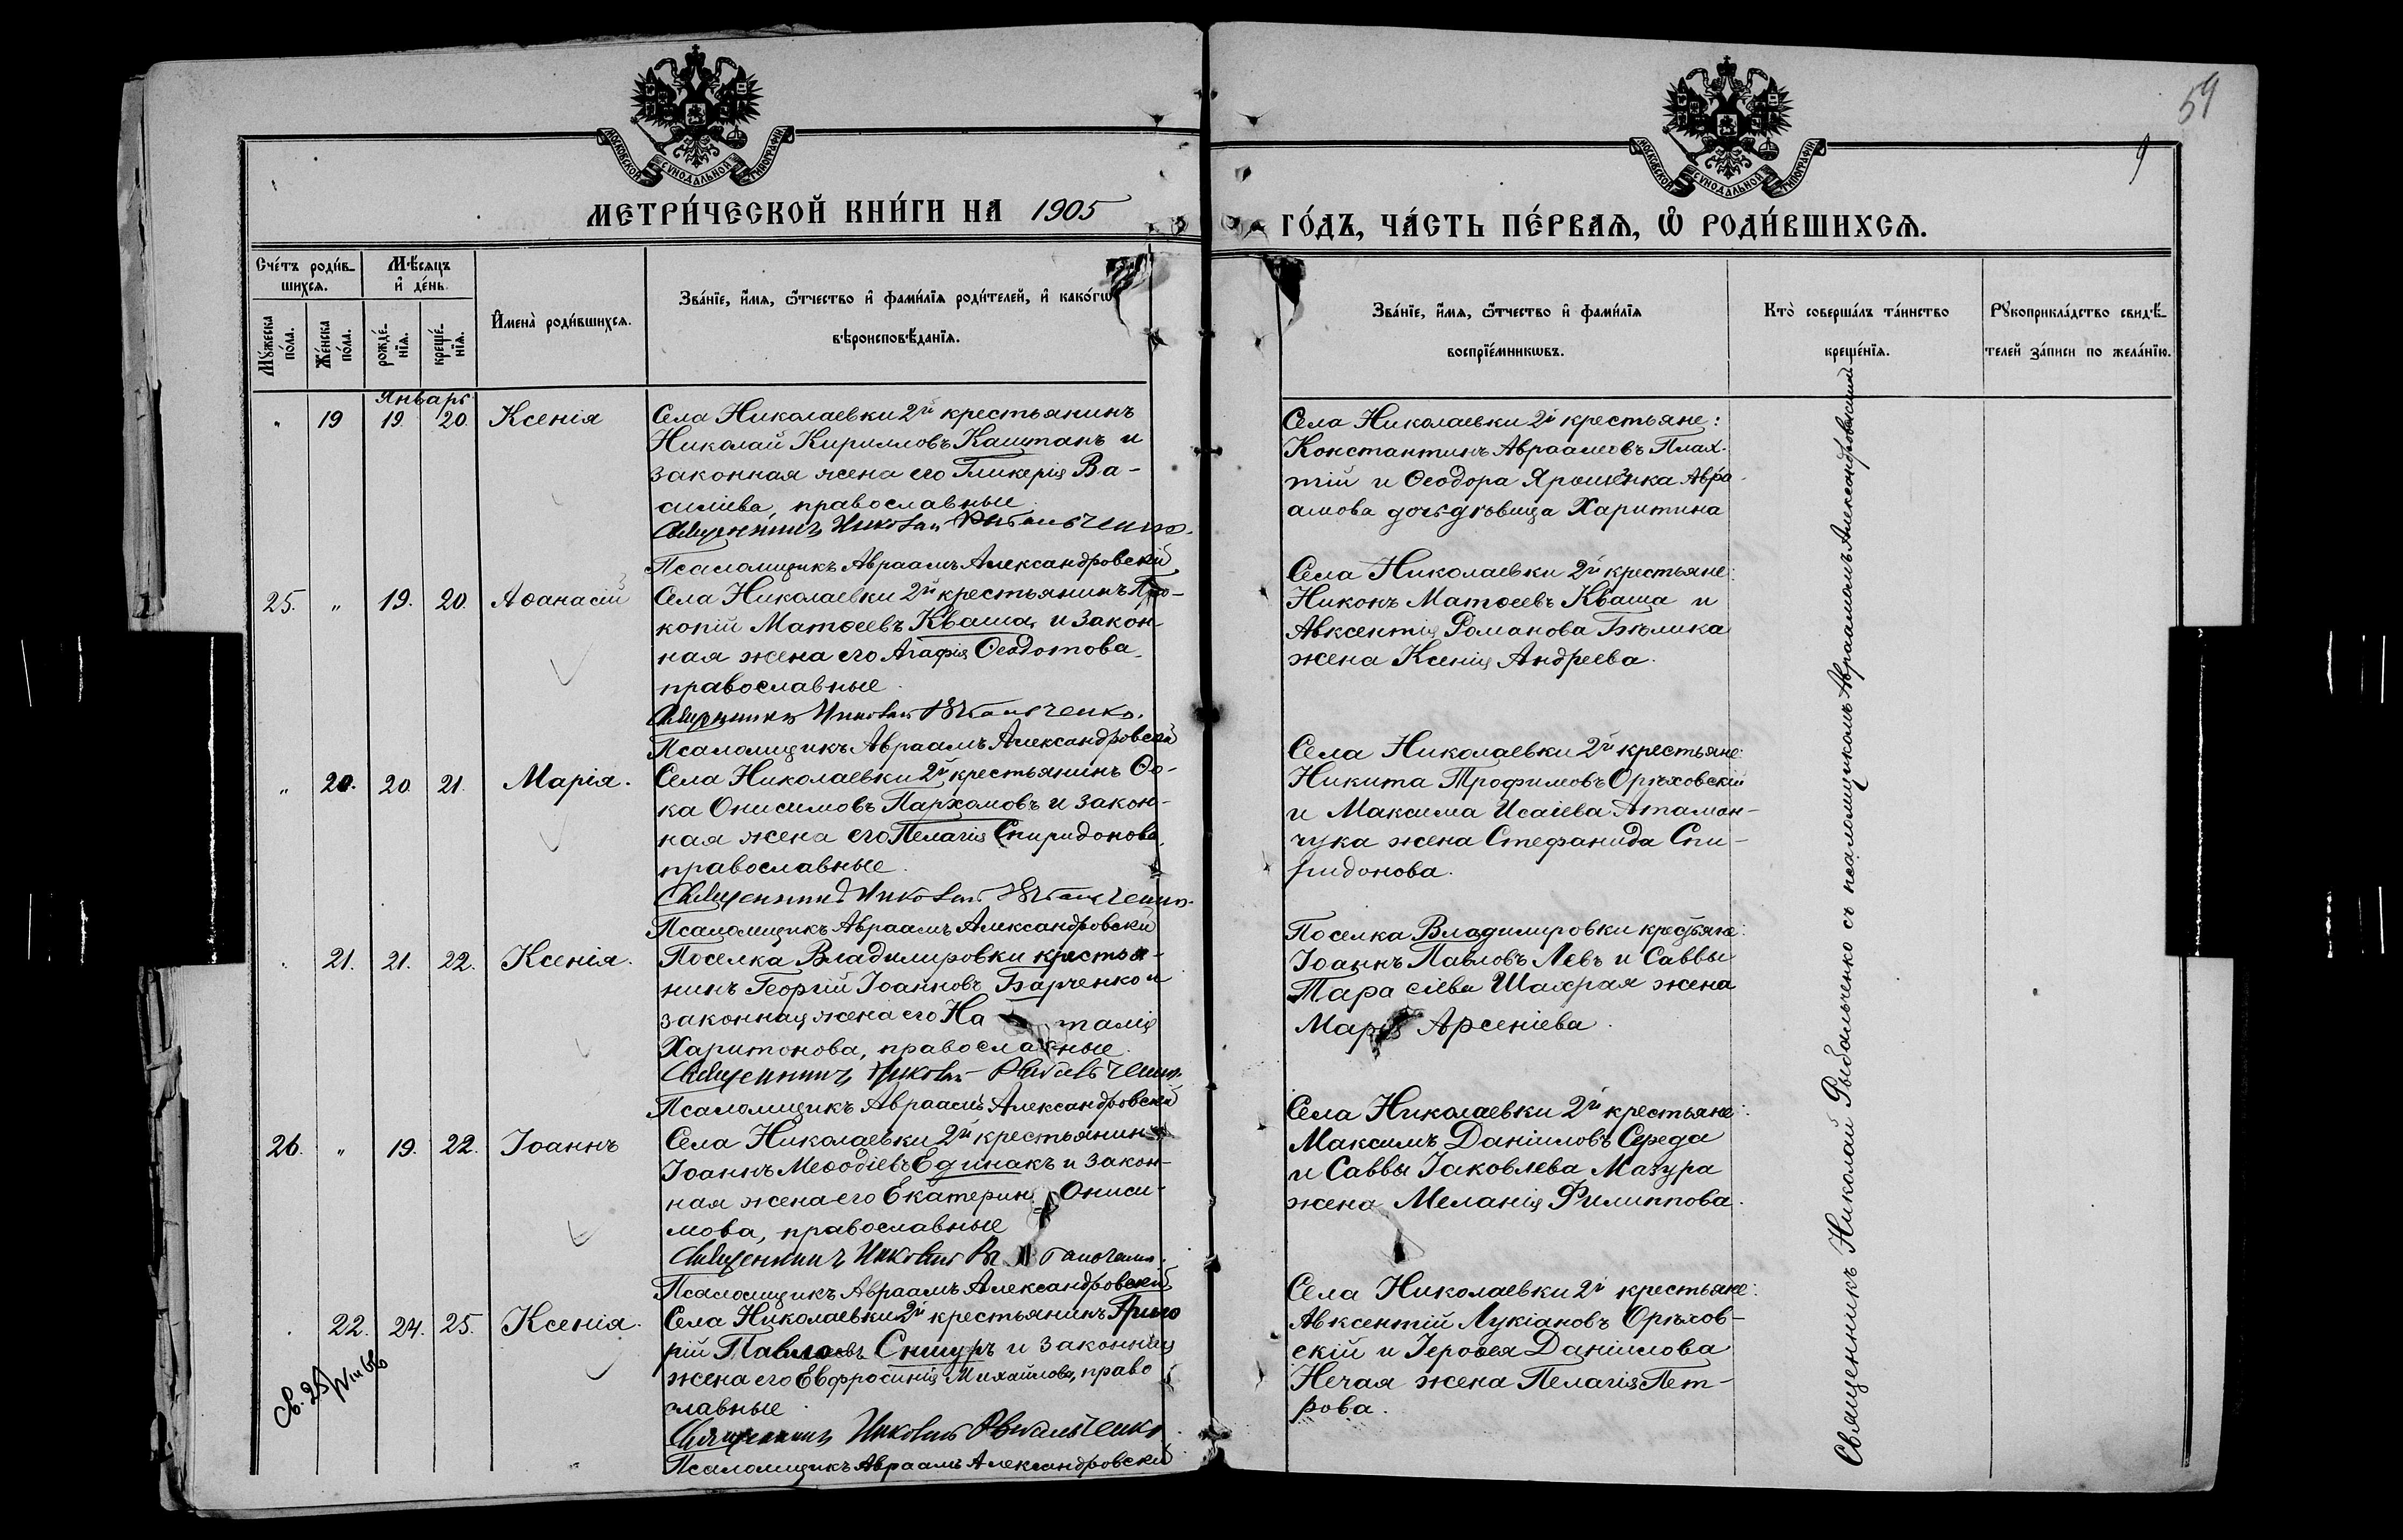 59
9
МОСКОВСКОЙ СѴНОДАЛЬНОЙ ТИПОГРАФІИ
МОСКОВСКОЙ СѴНОДАЛЬНОЙ ТИПОГРАФІИ
МЕТРИ́ЧЕСКОЙ КНИ́ГИ НА 1905
ГО́ДЪ, ЧА́СТЬ ПЕ́РВАѦ, Ѡ҆ РОДИ́ВШИХСѦ.
Сче́тъ роди́в-
шихсѧ.
Мѣ́сѧцъ
и҆ де́нь.
Мꙋ́жеска
по́ла.
Же́нска
по́ла.
рожде́-
нїѧ.
креще́-
нїѧ.
И҆мена̀ роди́вшихсѧ.
Зва́нїе, и҆́мѧ, ѻ҆́тчество и҆ фами́лїѧ роди́телей, и҆ како́гѡ
вѣроисповѣ́данїѧ.
Зва́нїе, и҆́мѧ, ѻ҆́тчество и҆ фами́лїѧ
воспрїе́мникѡвъ.
Кто̀ соверша́лъ та́инство
креще́нїѧ.
Рꙋкоприкла́дство свидѣ́-
телей за́писи по жела́нїю.
Январь
" 19 19. 20. Ксенія
Села Николаевки 2й крестьянинъ
Николай Кирилловъ Каштанъ и
законная жена его Гликерія Ва-
силіева, православные
Священникъ Николай Рыбальченко.
Псаломщикъ Авраамъ Александровскій
Села Николаевки 2й крестьяне:
Константинъ Авраамовъ Плах-
тій и Ѳеодора Ярошенка Авра-
амова дочь девица Харитина
25. " 19. 20. Аѳанасій
Села Николаевки 2й крестьянинъ Про-
копій Матѳеевъ Кваша и закон-
ная жена его Агафія Ѳеодотова
православные.
Священникъ Николай Рыбальченко.
Псаломщикъ Авраамъ Александровскій
Села Николаевки 2й крестьяне:
Никонъ Матѳеевъ Кваша и
Авксентія Романова Бѣлика
жена Ксенія Андреева.
" 20. 20. 21. Марія.
Села Николаевки 2й крестьянинъ Ѳо-
ка Онисимовъ Пархомовъ и закон-
ная жена его Пелагія Спиридонова,
православные.
Священникъ Николай Рыбальченко.
Псаломщикъ Авраамъ Александровскій
Села Николаевки 2й крестьяне:
Никита Трофимовъ Орѣховскій
и Максима Исаіева Атаман-
чука жена Стефанида Спи-
ридонова.
" 21. 21. 22. Ксенія.
Поселка Владимировки крестья-
нинъ Георгій Іоанновъ Барченко и
законная жена его На талія
Харитонова, православные.
Священникъ Николай Рыбальченко.
Псаломщикъ Авраамъ Александровскій
Поселка Владимировки крестьяне:
Іоаннъ Павловъ Левъ и Саввы
Тара сіева Шахрая жена
Марія Арсеніева.
26. " 19. 22. Іоаннъ
Села Николаевки 2й крестьянинъ
Іоаннъ Меѳодіевъ Единакъ и закон-
ная жена его Екатерина Ониси-
мова, православные
Священникъ Николай Ры бальченко.
Псаломщикъ Авраамъ Александровскій
Села Николаевки 2й крестьяне:
Максимъ Даніиловъ Середа
и Саввы Іаковлева Мазура
жена Меланія Филиппова.
" 22. 24. 25. Ксенія.
Села Николаевки 2й крестьянинъ Григо
рій Павловъ Снигуръ и законная
жена его Евфросинія Михайлова, право
славные.
Священникъ Николай Рыбальченко.
Псаломщикъ Авраамъ Александровскій
Села Николаевки 2й крестьяне:
Авксентій Лукіановъ Орѣхов-
скій и Іероѳея Даніилова
Нечая жена Пелагія Пет-
рова.
Священникъ Николай Рыбальченко съ псаломщикомъ Авраамомъ Александровскимъ